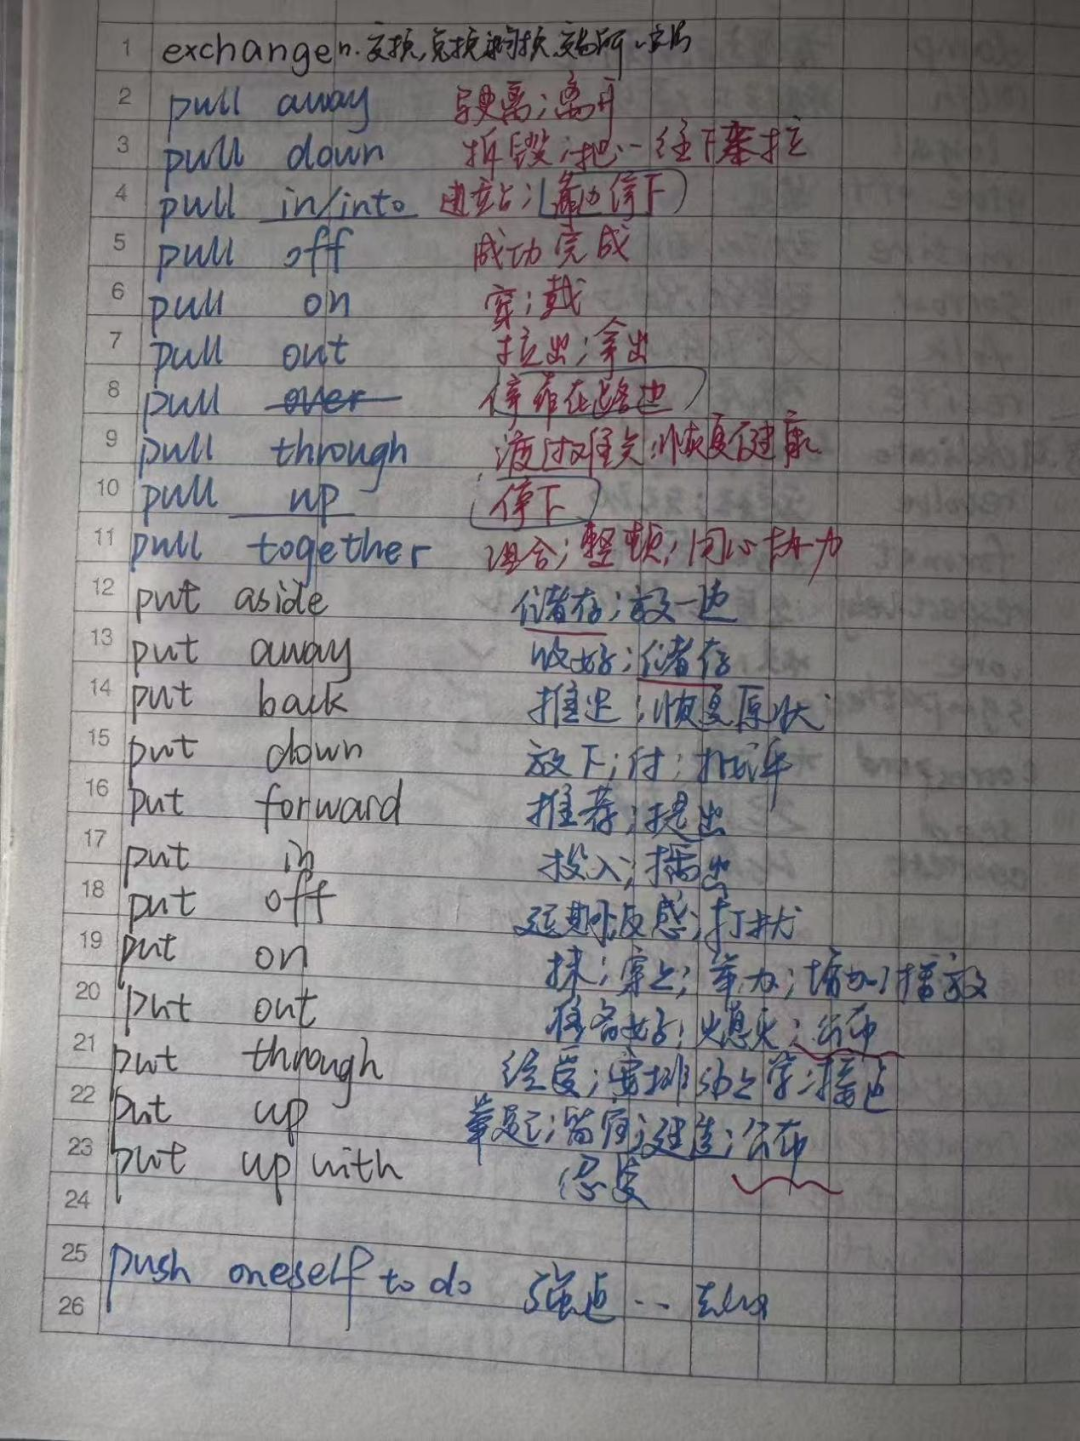 1 exchange n. 交换,兑换,交易所
2 pull away 驶离;离开
3 pull down 拆毁;把…往下拉
4 pull in/into 进站;(靠边停下)
5 pull off 成功完成
6 pull on 穿;戴
7 pull out 拉出;拿出
8 pull over 停靠在路边
9 pull through 渡过难关;恢复健康
10 pull up 停下
11 pull together 组合;整顿;同心协力
12 put aside 储存;放一边
13 put away 收好;储存
14 put back 推迟;恢复原状
15 put down 放下;付;
16 put forward 推荐;提出
17 put in 投入;插出
18 put off 延期;反感;打扰
19 put on 抹;穿上;举办;增加;播放
20 put out 准备好;熄灭;公布
21 put through 经受;安排;上学;接通
22 put up 举起;留宿;建造;公布
23 put up with 忍受
24
25 push oneself to do 强迫…去做
26